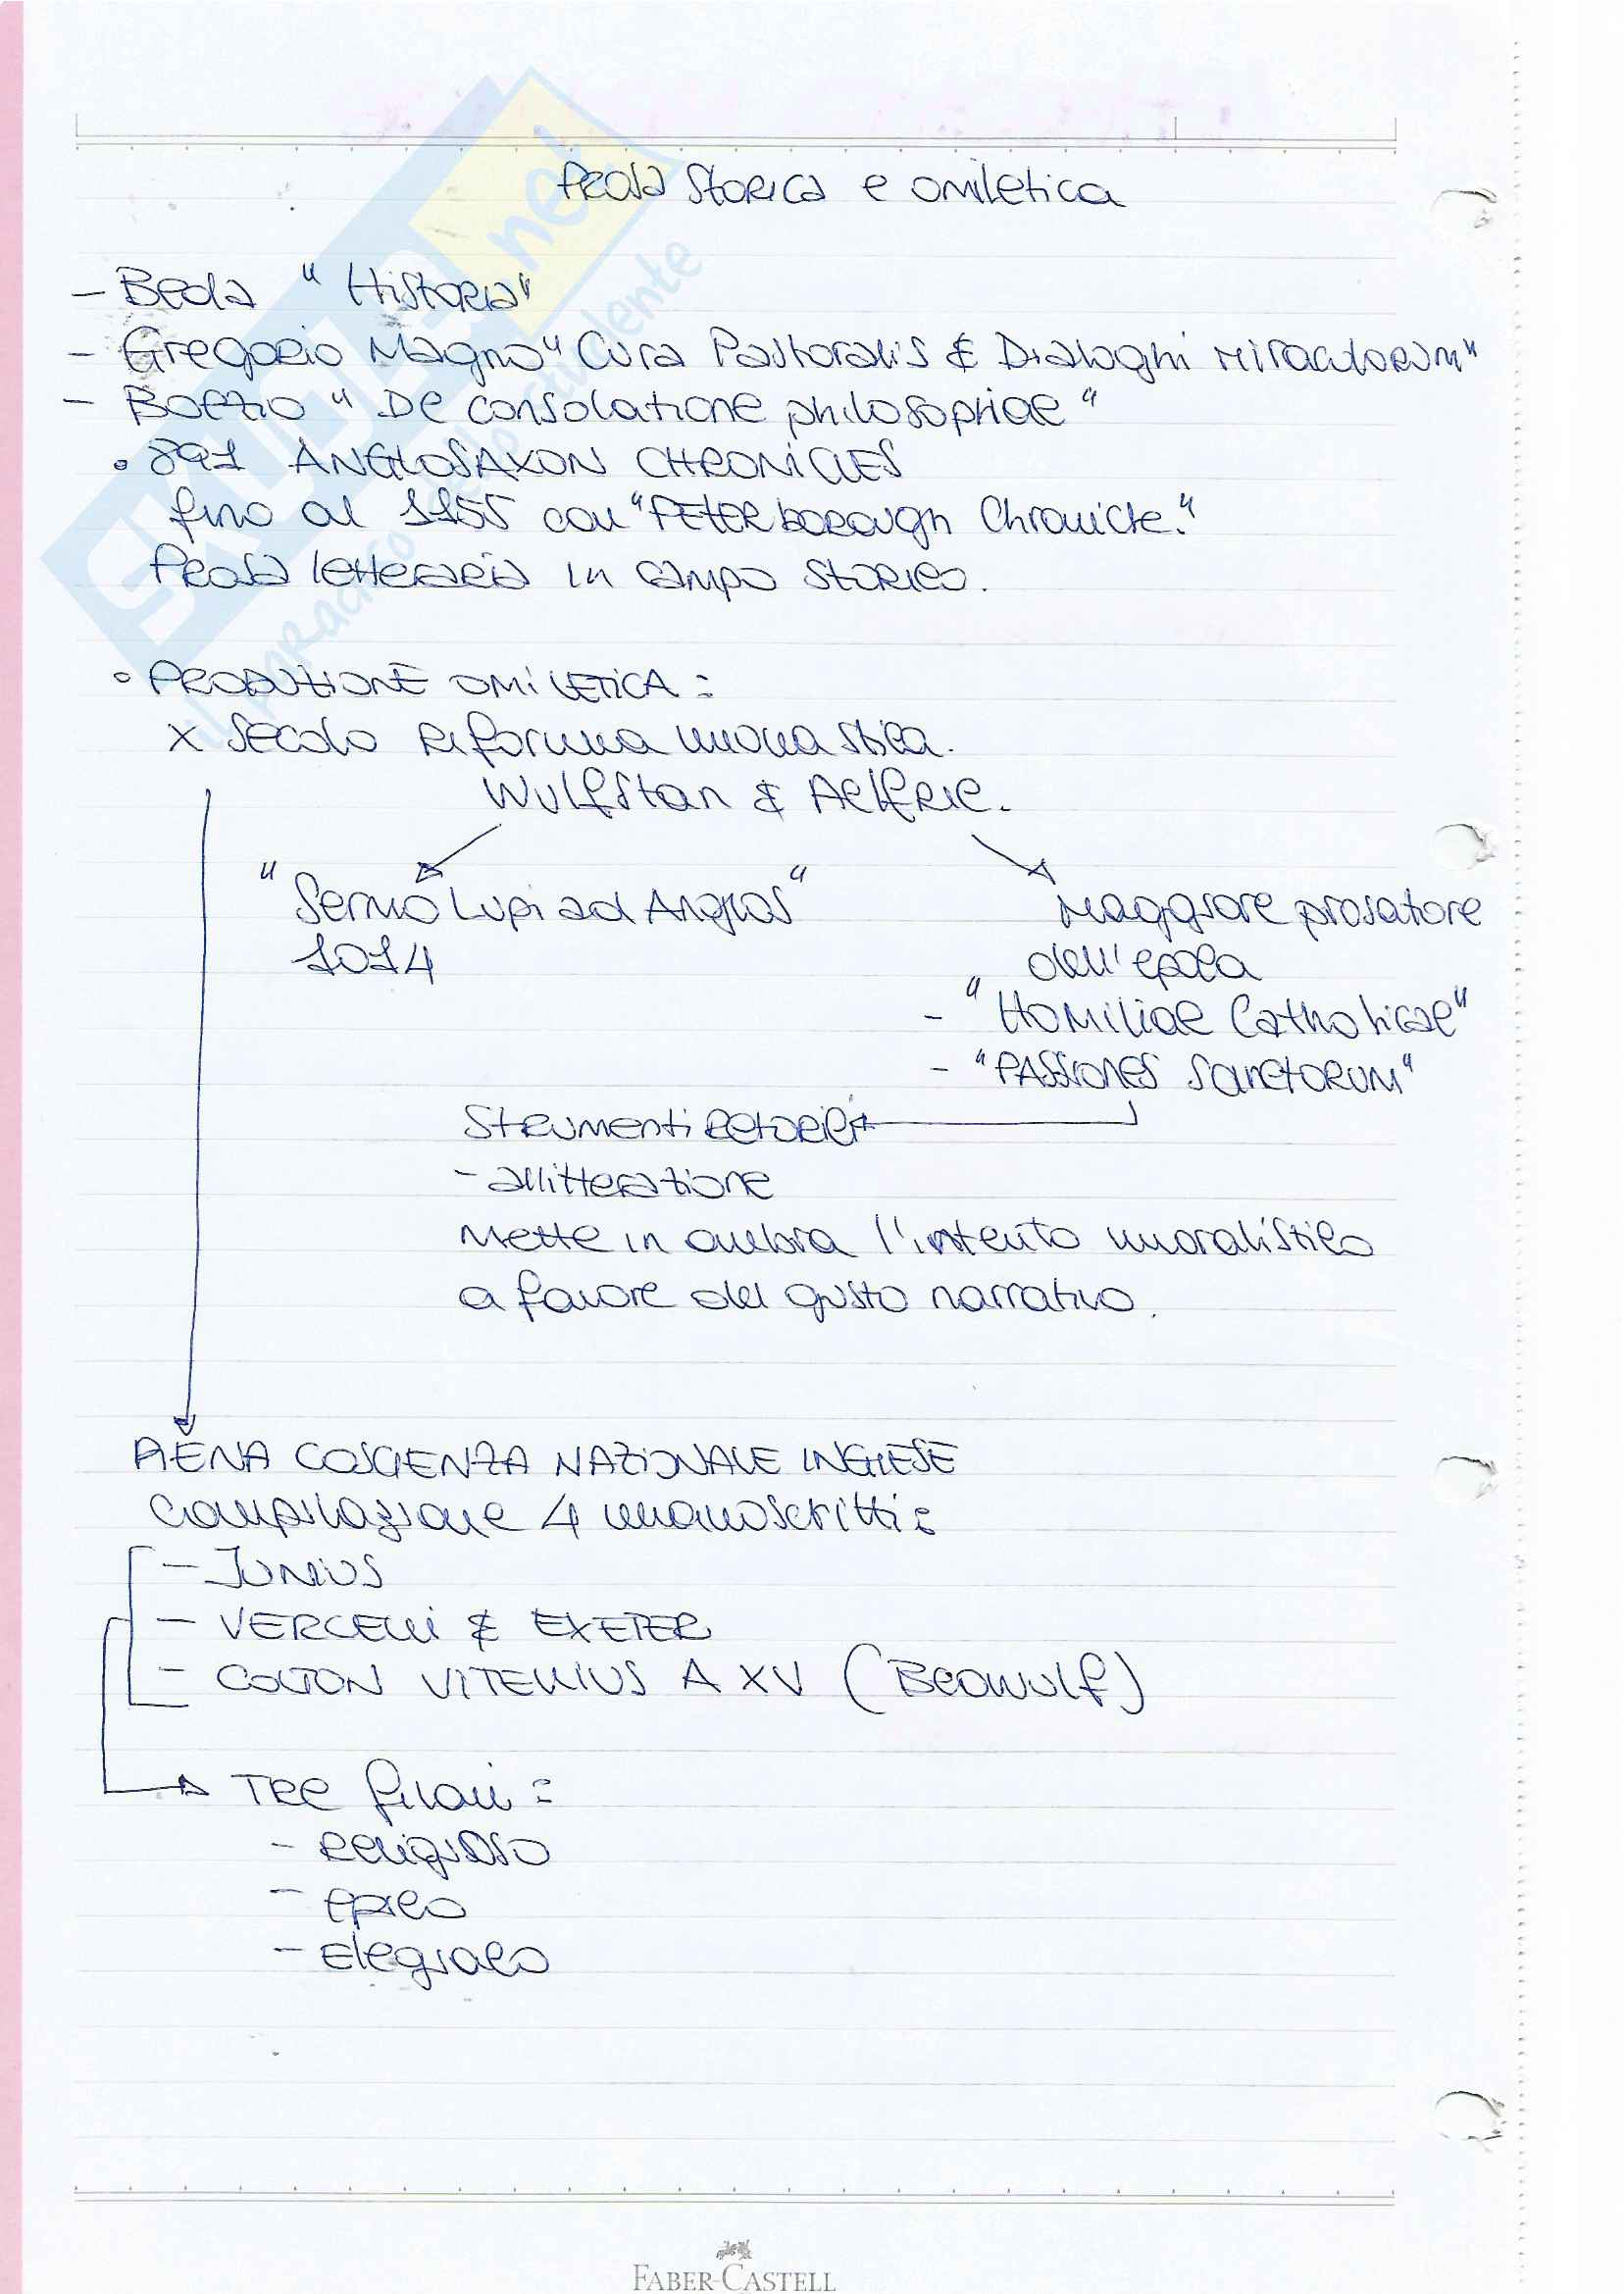 Prosa Storica e omiletica
- Beda "Historia"
- Gregorio Magno "Cura Pastoralis & Dialoghi Miraculorum"
- Boezio "De consolatione philosophiae"
• 891 ANGLOSAXON CHRONICLES
fino al 1155 con "PETERborough Chronicle."
Prosa letteraria in campo storico.
• PRODUZIONE OMILETICA:
X secolo Riforma monastica.
Wulfstan & Aelfric.
"Sermo Lupi ad Anglos"
1014
Maggiore prosatore
dell'epoca
- "Homiliae Catholicae"
- "PASSIONES SANCTORUM"
Strumenti Retorici
- allitterazione
Mette in ombra l'intento moralistico
a favore del gusto narrativo.
PIENA COSCIENZA NAZIONALE INGLESE
Compilazione 4 manoscritti:
- JUNIUS
- VERCELLI & EXETER
- COTTON VITELLIUS A XV (Beowulf)
Tre filoni:
- Religioso
- Epico
- Elegiaco
SKUOLA.net
il paradiso dello studente
FABER-CASTELL